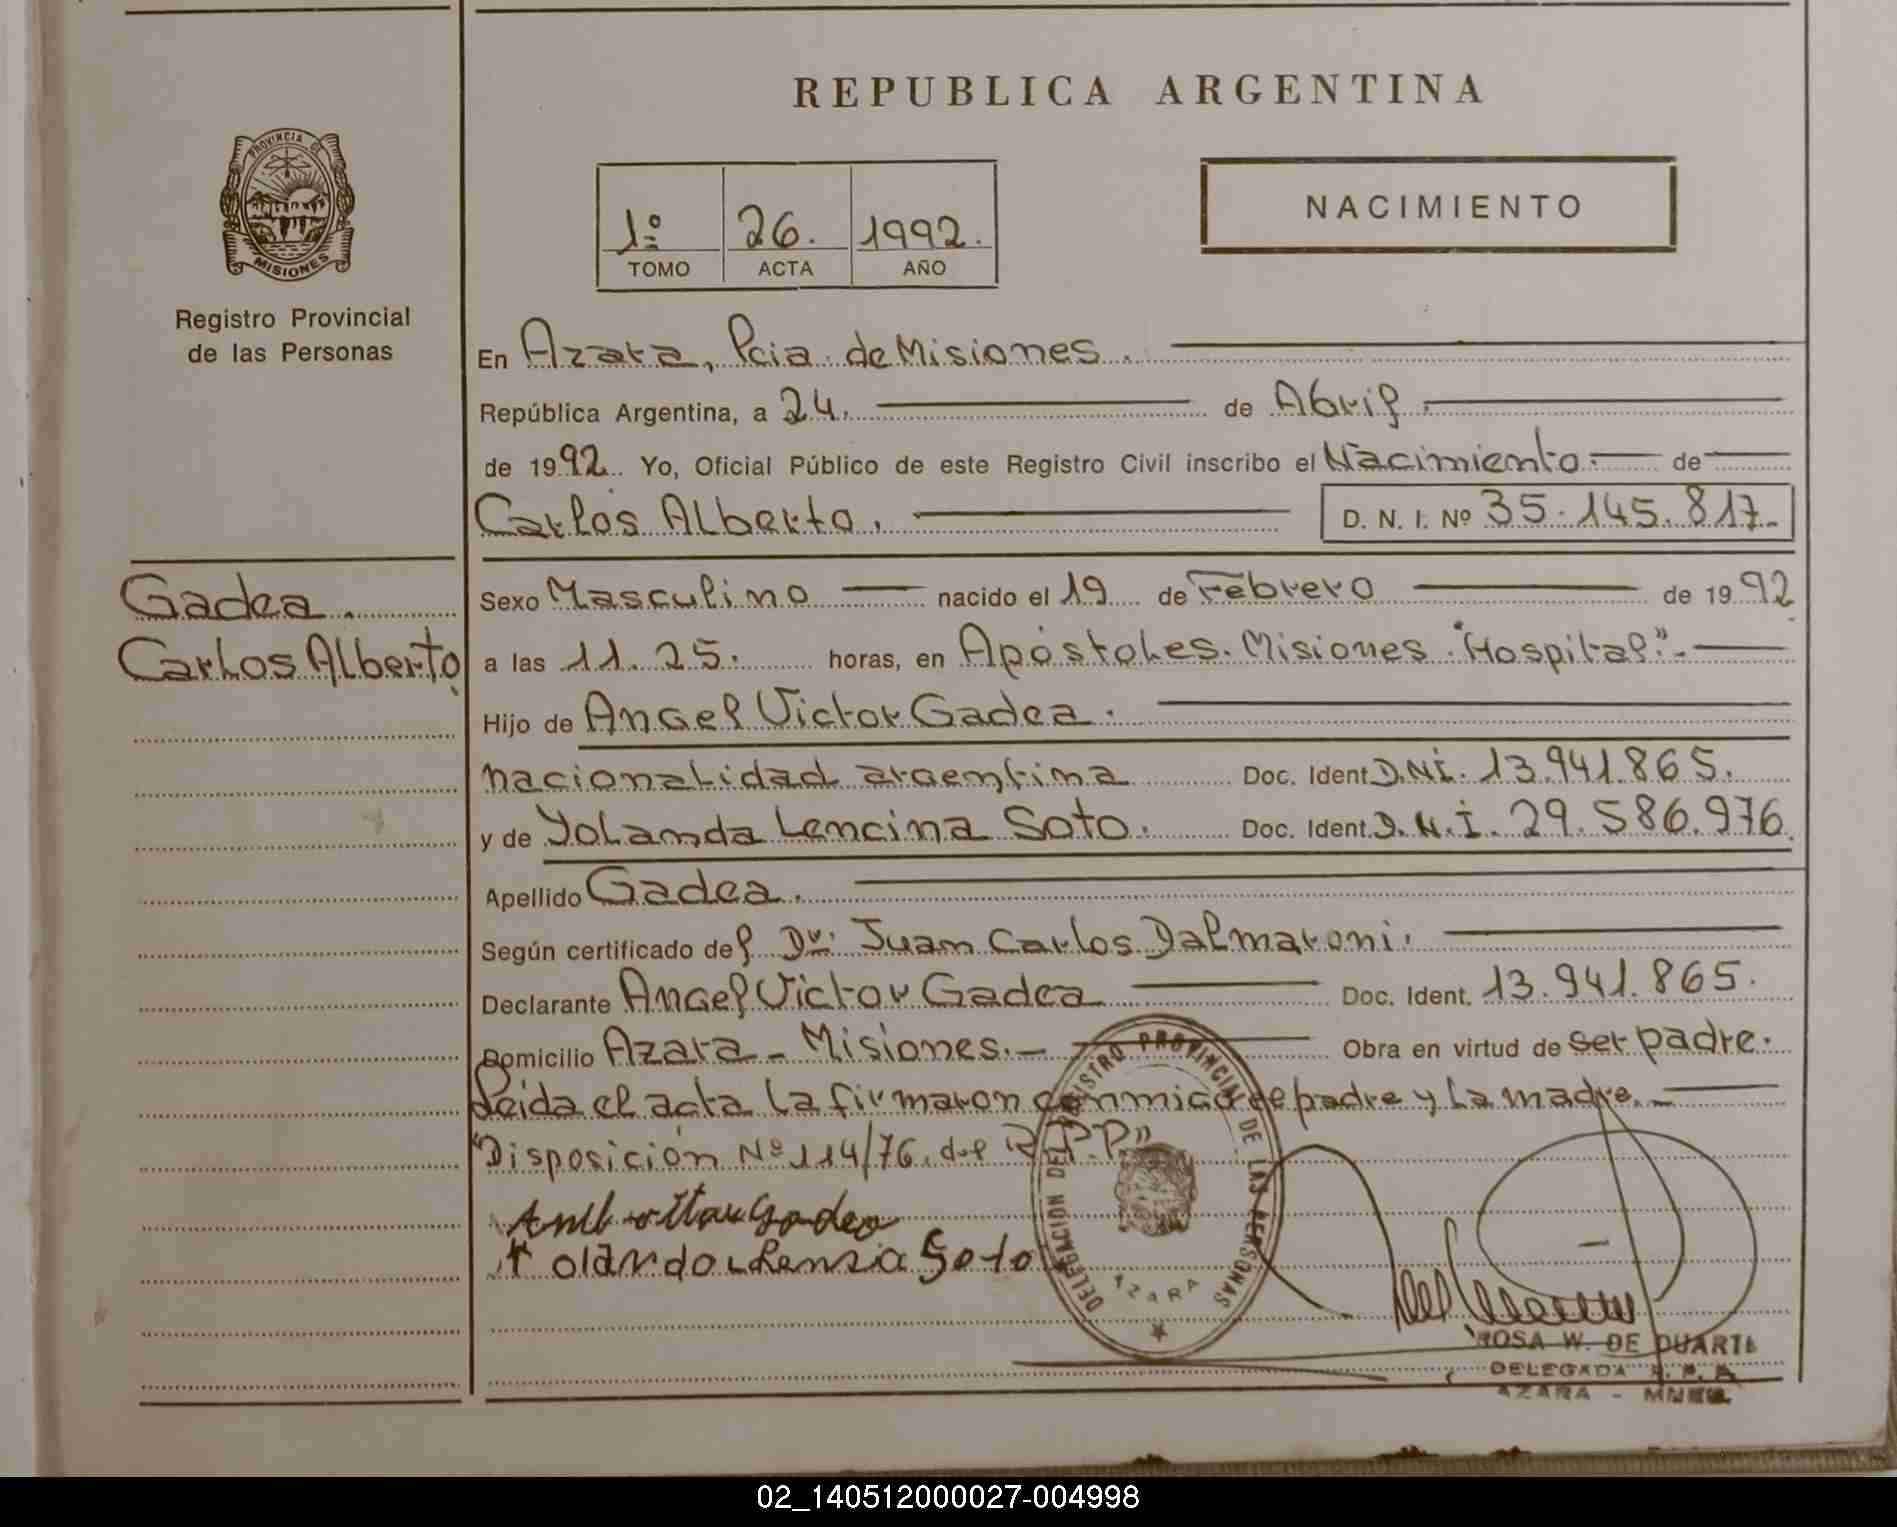 REPUBLICA ARGENTINA
PROVINCIA DE
MISIONES
Registro Provincial
de las Personas
1º 26. 1992.
TOMO ACTA AÑO
NACIMIENTO
En Azara, Pcia. de Misiones.
República Argentina, a 24. de Abril.
de 1992. Yo, Oficial Público de este Registro Civil inscribo el Nacimiento. de
Carlos Alberto. D. N. I. Nº 35.145.817.-
Gadea.
Carlos Alberto
Sexo Masculino nacido el 19 de Febrero de 1992
a las 11.25. horas, en Apóstoles. Misiones. "Hospital".-
Hijo de Angel Victor Gadea.
nacionalidad argentina Doc. Ident. D.N.I. 13.941.865.
y de Yolanda Lencina Soto. Doc. Ident. D.N.I. 29.586.976.
Apellido Gadea.
Según certificado del Dr. Juan Carlos Dalmaroni.
Declarante Angel Victor Gadea Doc. Ident. 13.941.865.
Domicilio Azara - Misiones.- Obra en virtud de ser padre.
Leida el acta la firmaron conmigo el padre y la madre.-
"Disposición Nº 114/76. del R.P.P."
Gadea
Soto
DELEGACION DEL REGISTRO PROVINCIAL DE LAS PERSONAS
AZARA
ROSA W. DE DUARTE
DELEGADA R. P. P.
AZARA - MNES.
02_140512000027-004998